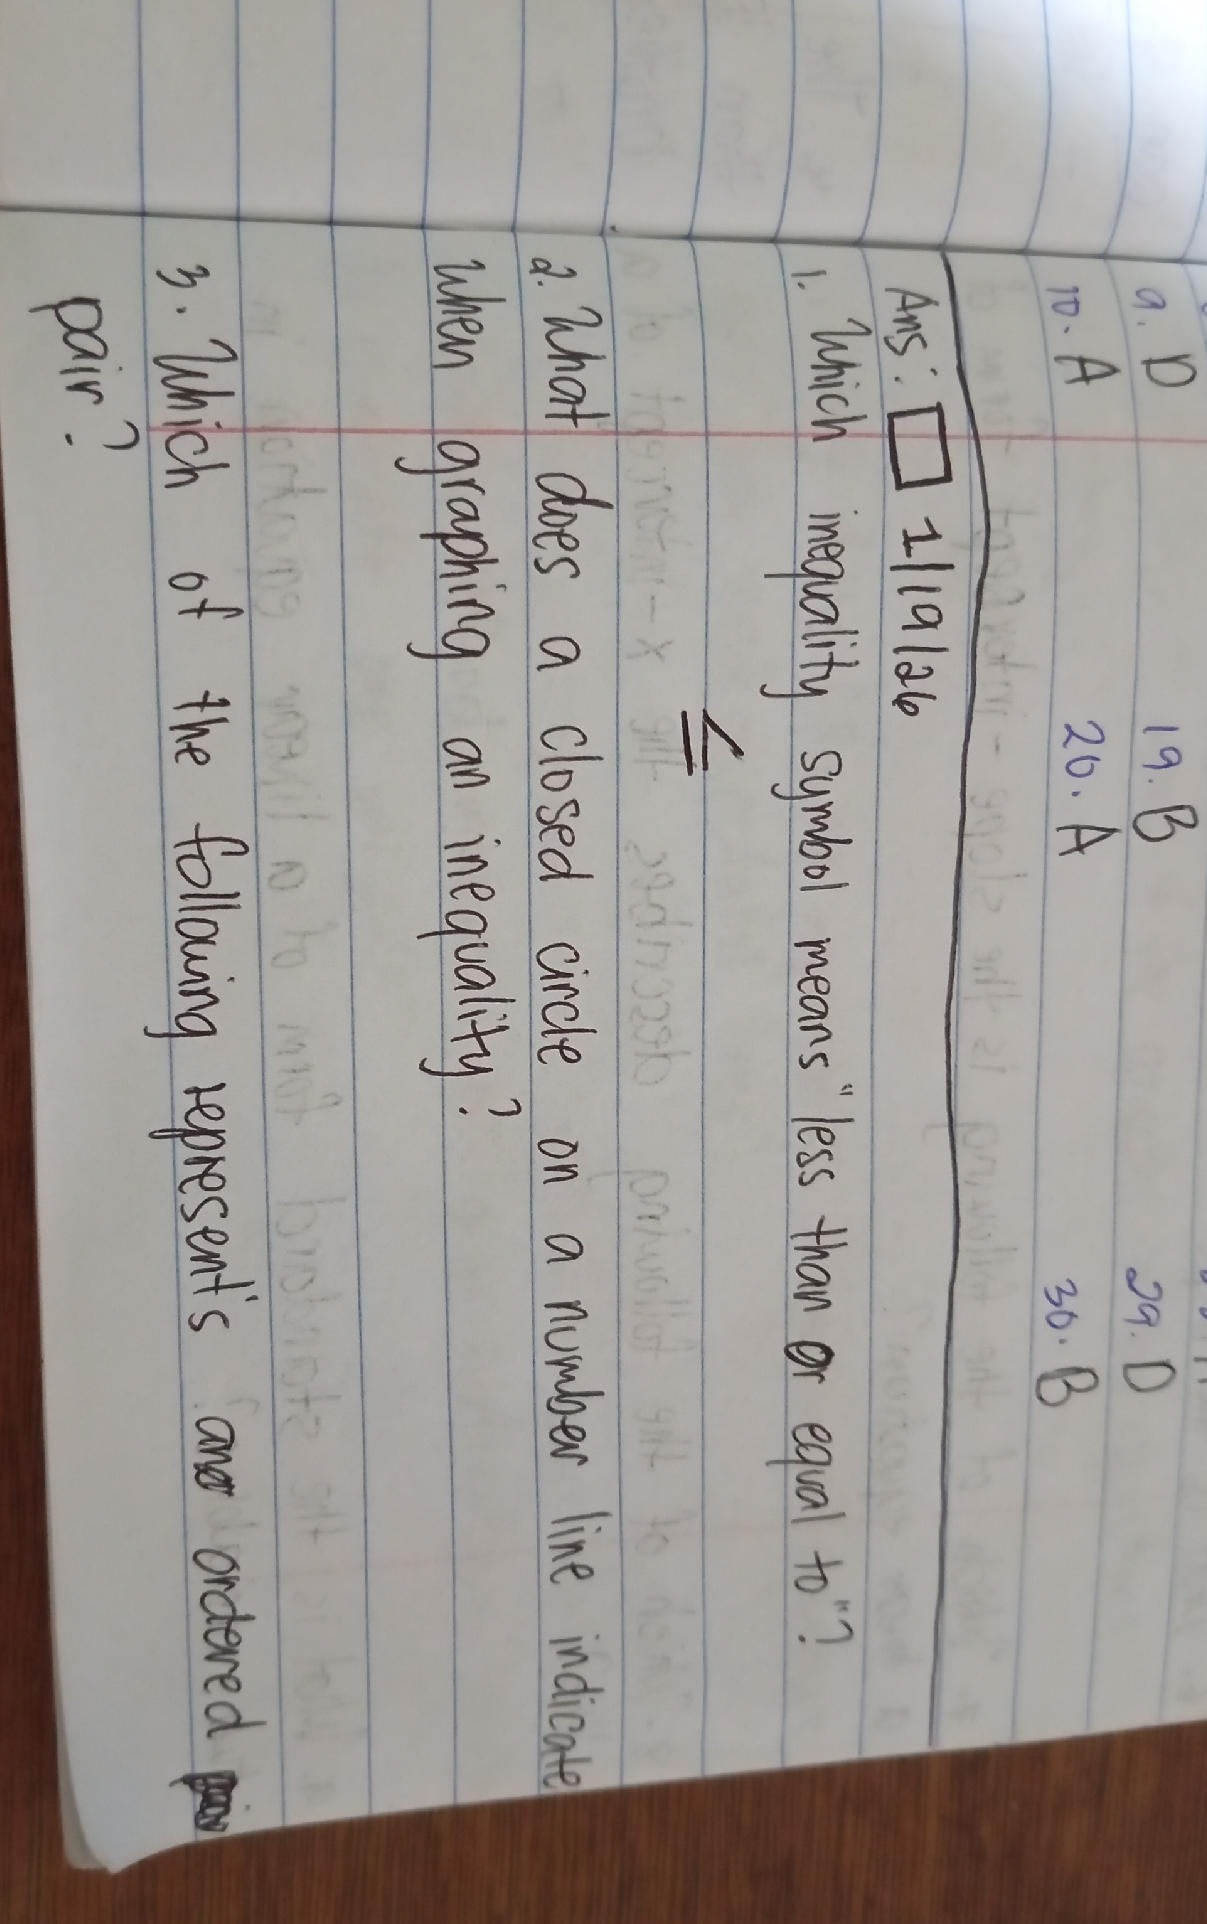 9. D 19. B 29. D
10. A 20. A 30. B
Ans: 1/19/26
1. Which inequality symbol means "less than or equal to"?
≤
2. What does a closed circle on a number line indicate
when graphing an inequality?
3. Which of the following represent's an ordered
pair?